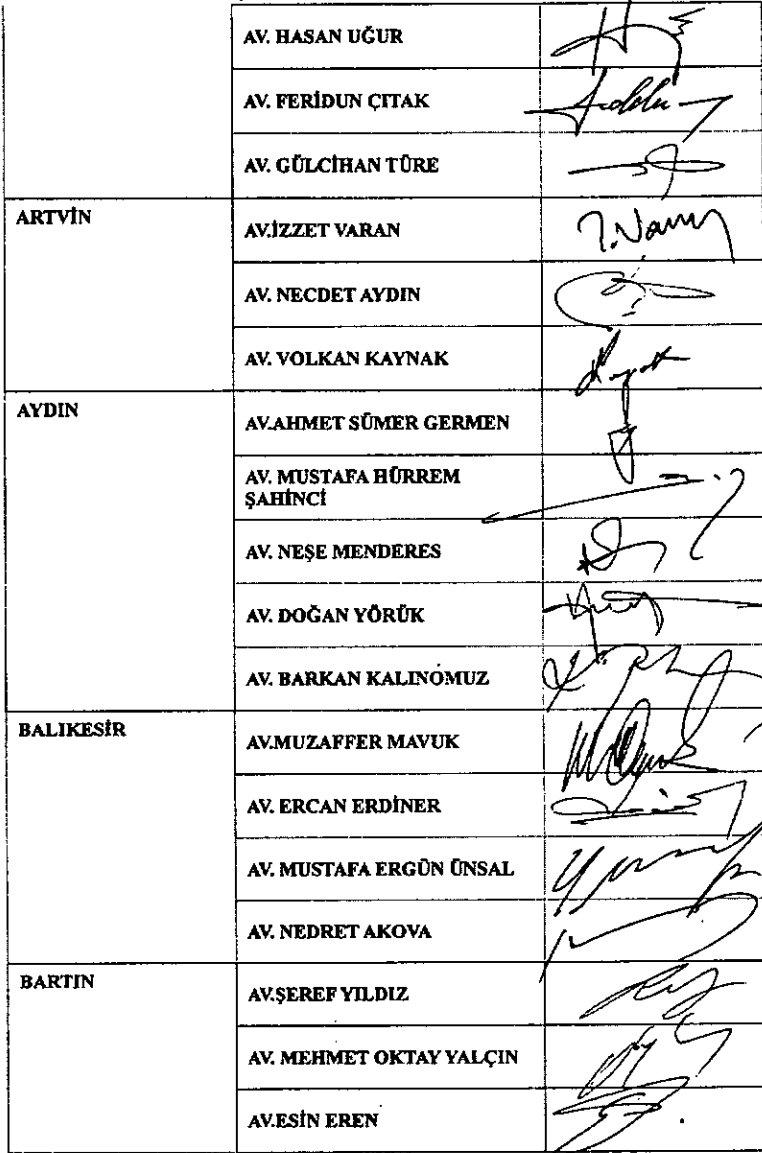 AV. HASAN UĞUR
AV. FERİDUN ÇITAK
AV. GÜLCİHAN TÜRE
ARTVİN
AV.İZZET VARAN
AV. NECDET AYDIN
AV. VOLKAN KAYNAK
AYDIN
AV.AHMET SÜMER GERMEN
AV. MUSTAFA HÜRREM
ŞAHİNCİ
AV. NEŞE MENDERES
AV. DOĞAN YÖRÜK
AV. BARKAN KALINOMUZ
BALIKESİR
AV.MUZAFFER MAVUK
AV. ERCAN ERDİNER
AV. MUSTAFA ERGÜN ÜNSAL
AV. NEDRET AKOVA
BARTIN
AV.ŞEREF YILDIZ
AV. MEHMET OKTAY YALÇIN
AV.ESİN EREN